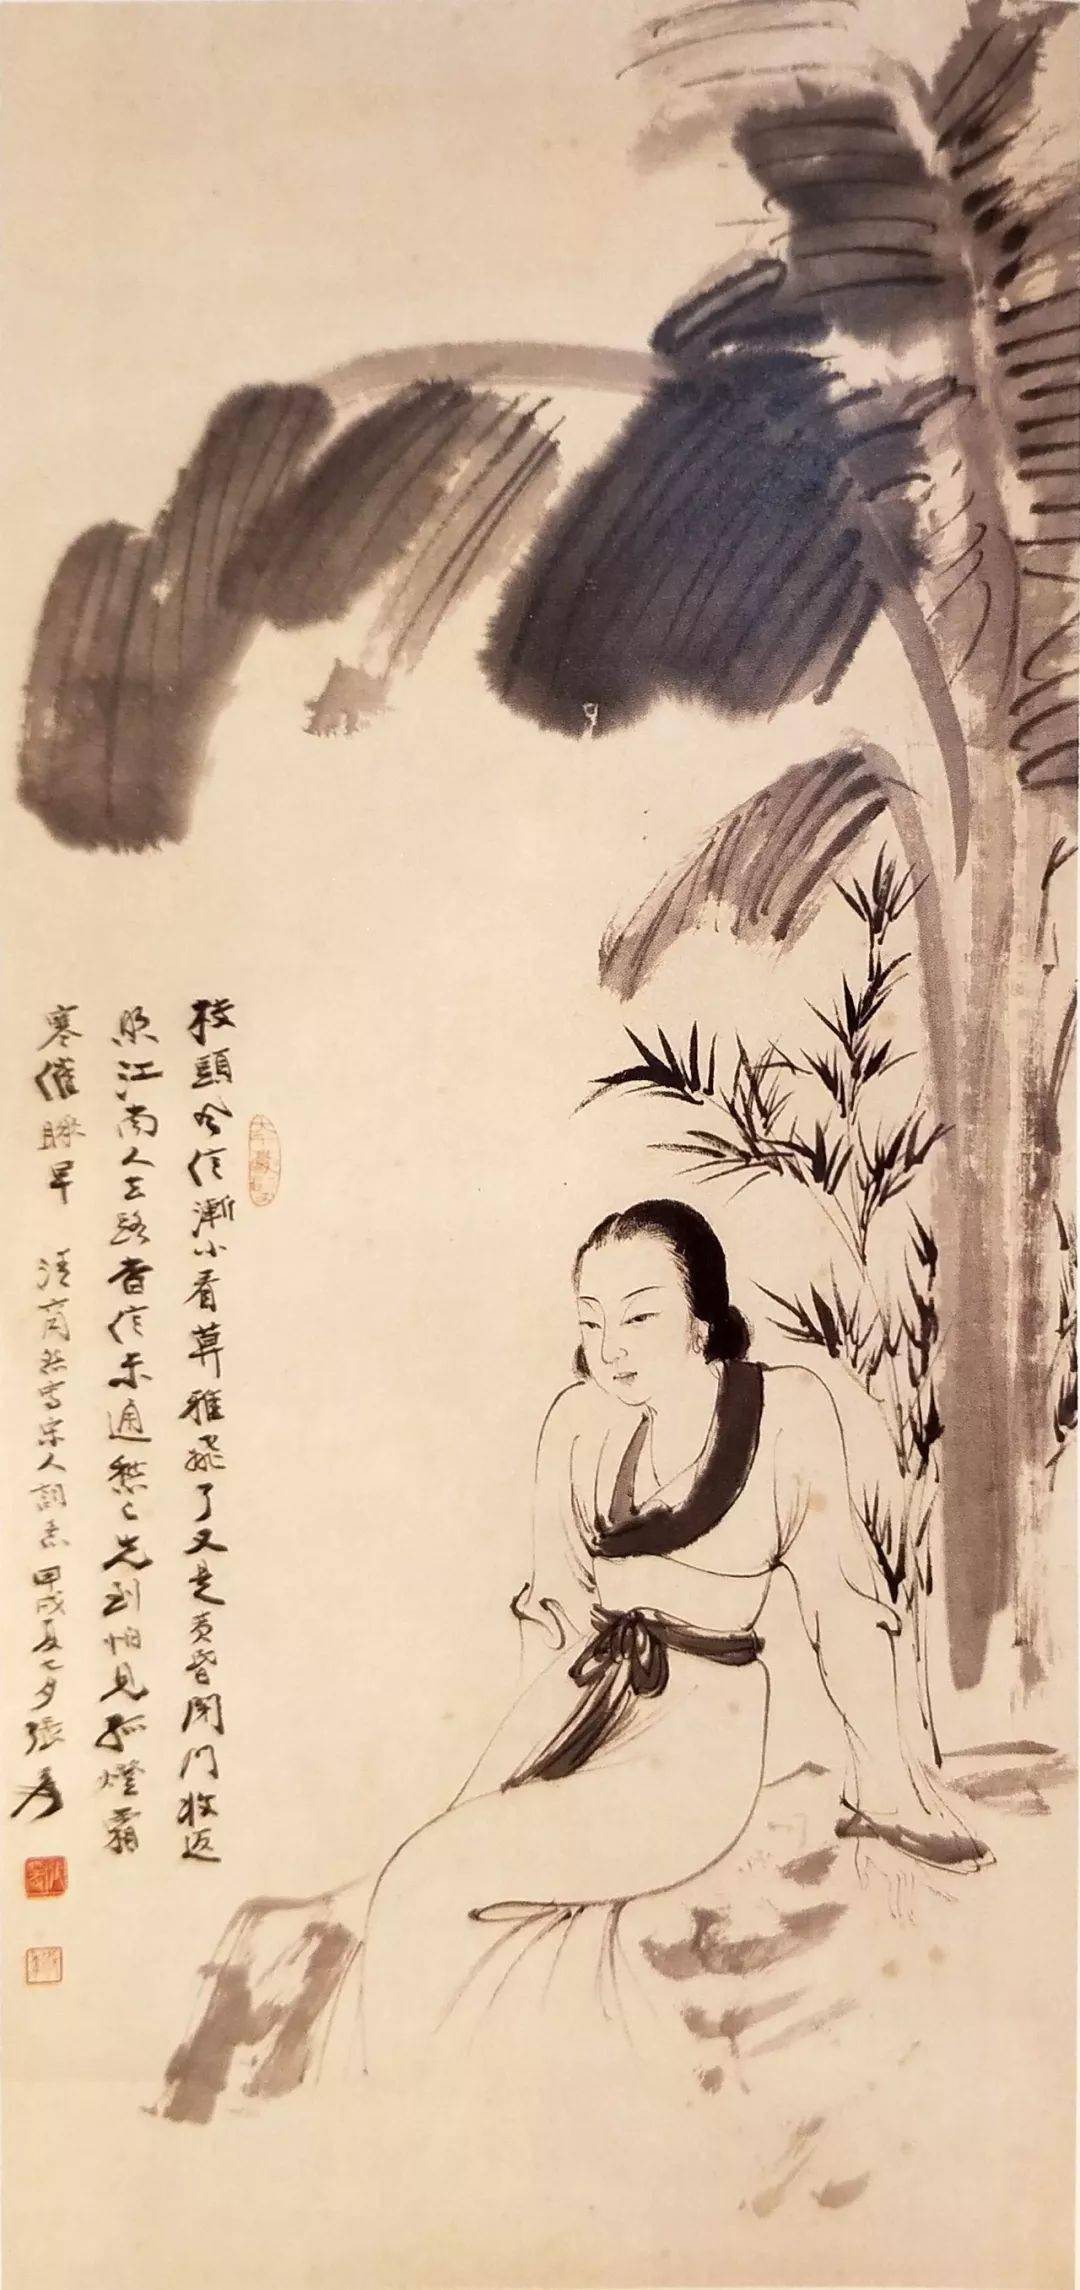 枝頭風信漸小看莫雅飛了又是黃昏閉門收返
照江南人去路杳信未通愁已先到怕見孤燈霜
寒催睡早 清商怨寫宋人詞意 甲戌夏七夕張爰